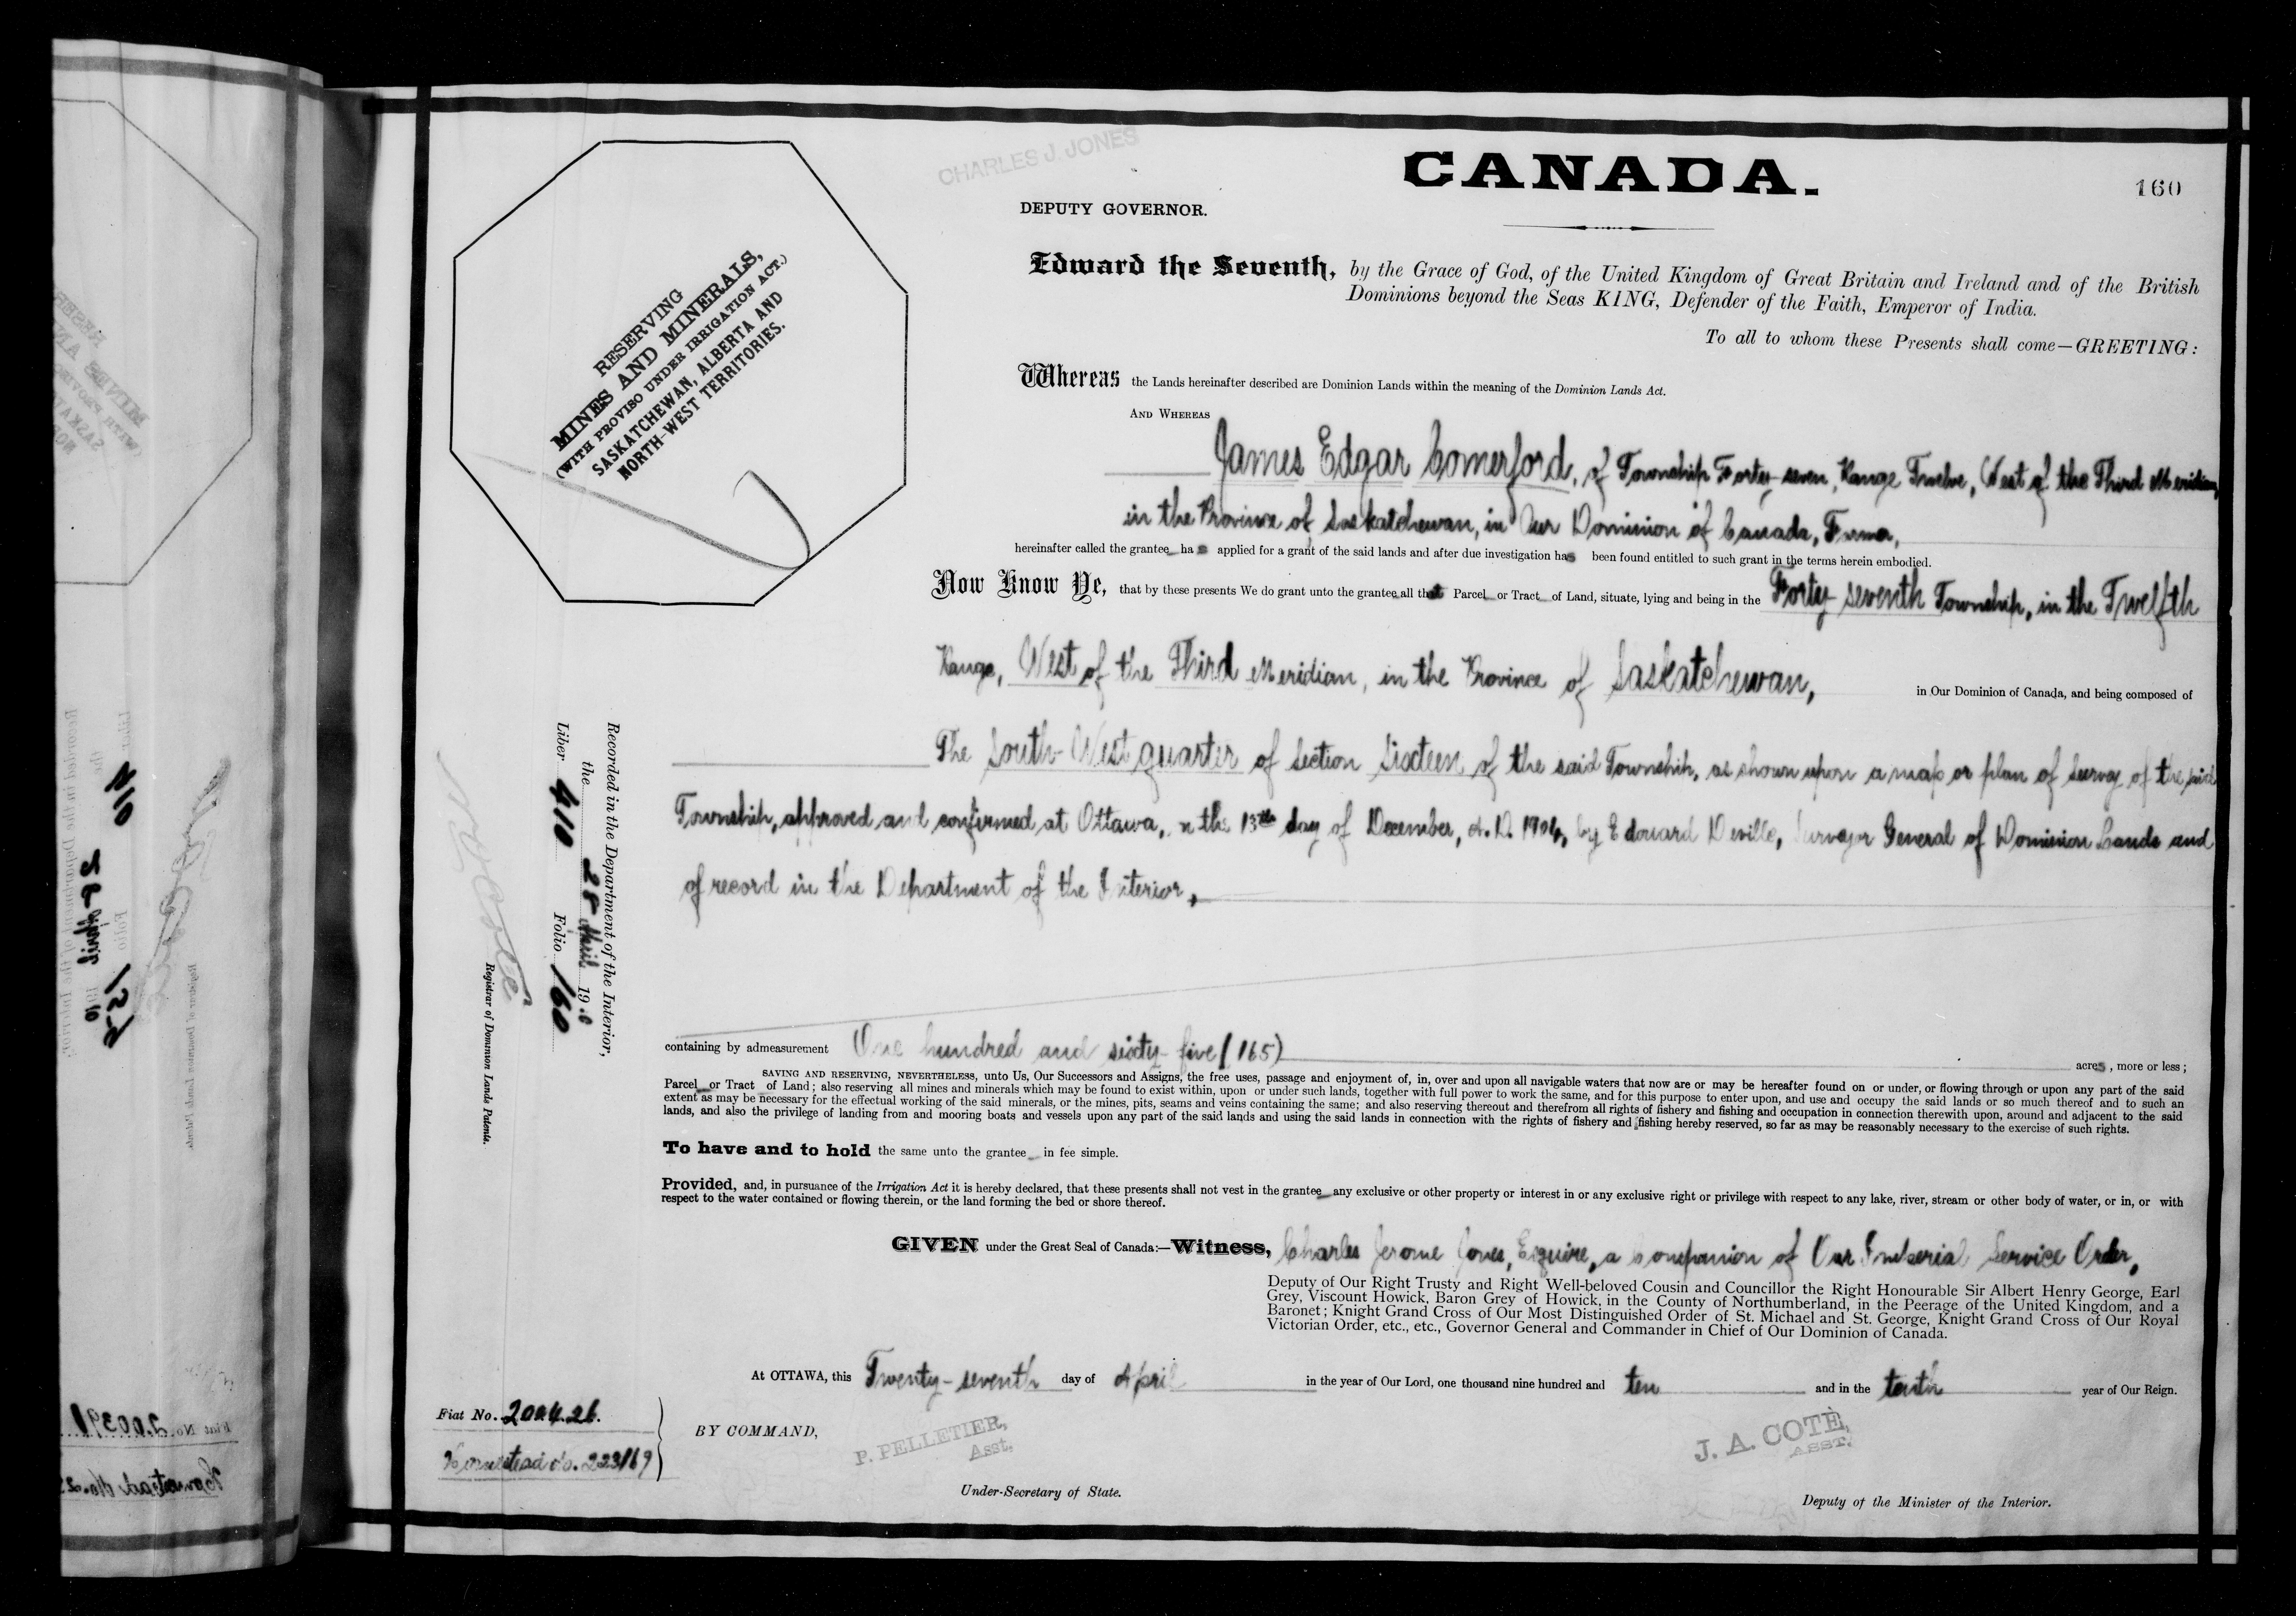 CHARLES J. JONES
CANADA.
160
DEPUTY GOVERNOR.
Edward the Seventh, by the Grace of God, of the United Kingdom of Great Britain and Ireland and of the British
Dominions beyond the Seas KING, Defender of the Faith, Emperor of India.
To all to whom these Presents shall come—GREETING:
RESERVING
MINES AND MINERALS,
(WITH PROVISO UNDER IRRIGATION ACT.)
SASKATCHEWAN, ALBERTA AND
NORTH-WEST TERRITORIES.
Whereas the Lands hereinafter described are Dominion Lands within the meaning of the Dominion Lands Act.
AND WHEREAS
James Edgar Comerford, of Township Forty-seven, Range Twelve, West of the Third Meridian,
in the Province of Saskatchewan, in Our Dominion of Canada, Farmer,
hereinafter called the grantee has applied for a grant of the said lands and after due investigation has been found entitled to such grant in the terms herein embodied.
Now Know Ye, that by these presents We do grant unto the grantee all that Parcel or Tract of Land, situate, lying and being in the Forty-seventh Township, in the Twelfth
Range, West of the Third Meridian, in the Province of Saskatchewan, in Our Dominion of Canada, and being composed of
The South-West quarter of Section Sixteen of the said Township, as shown upon a map or plan of Survey of the said
Township, approved and confirmed at Ottawa, on the 13th day of December, A.D. 1904, by Edouard Deville, Surveyor General of Dominion Lands and
of record in the Department of the Interior,
containing by admeasurement One hundred and sixty-five (165) acres, more or less;
SAVING AND RESERVING, NEVERTHELESS, unto Us, Our Successors and Assigns, the free uses, passage and enjoyment of, in, over and upon all navigable waters that now are or may be hereafter found on or under, or flowing through or upon any part of the said
Parcel or Tract of Land; also reserving all mines and minerals which may be found to exist within, upon or under such lands, together with full power to work the same, and for this purpose to enter upon, and use and occupy the said lands or so much thereof and to such an
extent as may be necessary for the effectual working of the said minerals, or the mines, pits, seams and veins containing the same; and also reserving thereout and therefrom all rights of fishery and fishing and occupation in connection therewith upon, around and adjacent to the said
lands, and also the privilege of landing from and mooring boats and vessels upon any part of the said lands and using the said lands in connection with the rights of fishery and fishing hereby reserved, so far as may be reasonably necessary to the exercise of such rights.
To have and to hold the same unto the grantee in fee simple.
Provided, and, in pursuance of the Irrigation Act it is hereby declared, that these presents shall not vest in the grantee any exclusive or other property or interest in or any exclusive right or privilege with respect to any lake, river, stream or other body of water, or in, or with
respect to the water contained or flowing therein, or the land forming the bed or shore thereof.
GIVEN under the Great Seal of Canada:—Witness, Charles Jerome Jones, Esquire, a Companion of Our Imperial Service Order,
Deputy of Our Right Trusty and Right Well-beloved Cousin and Councillor the Right Honourable Sir Albert Henry George, Earl
Grey, Viscount Howick, Baron Grey of Howick, in the County of Northumberland, in the Peerage of the United Kingdom, and a
Baronet; Knight Grand Cross of Our Most Distinguished Order of St. Michael and St. George, Knight Grand Cross of Our Royal
Victorian Order, etc., etc., Governor General and Commander in Chief of Our Dominion of Canada.
At OTTAWA, this Twenty-seventh day of April in the year of Our Lord, one thousand nine hundred and ten and in the tenth year of Our Reign.
BY COMMAND,
P. PELLETIER,
Asst.
Under-Secretary of State.
J. A. COTÉ,
ASST.
Deputy of the Minister of the Interior.
Recorded in the Department of the Interior,
the 28 April 1910
Liber 410 Folio 160
Registrar of Dominion Lands Patents.
Fiat No. 200426.
Homestead No. 223169